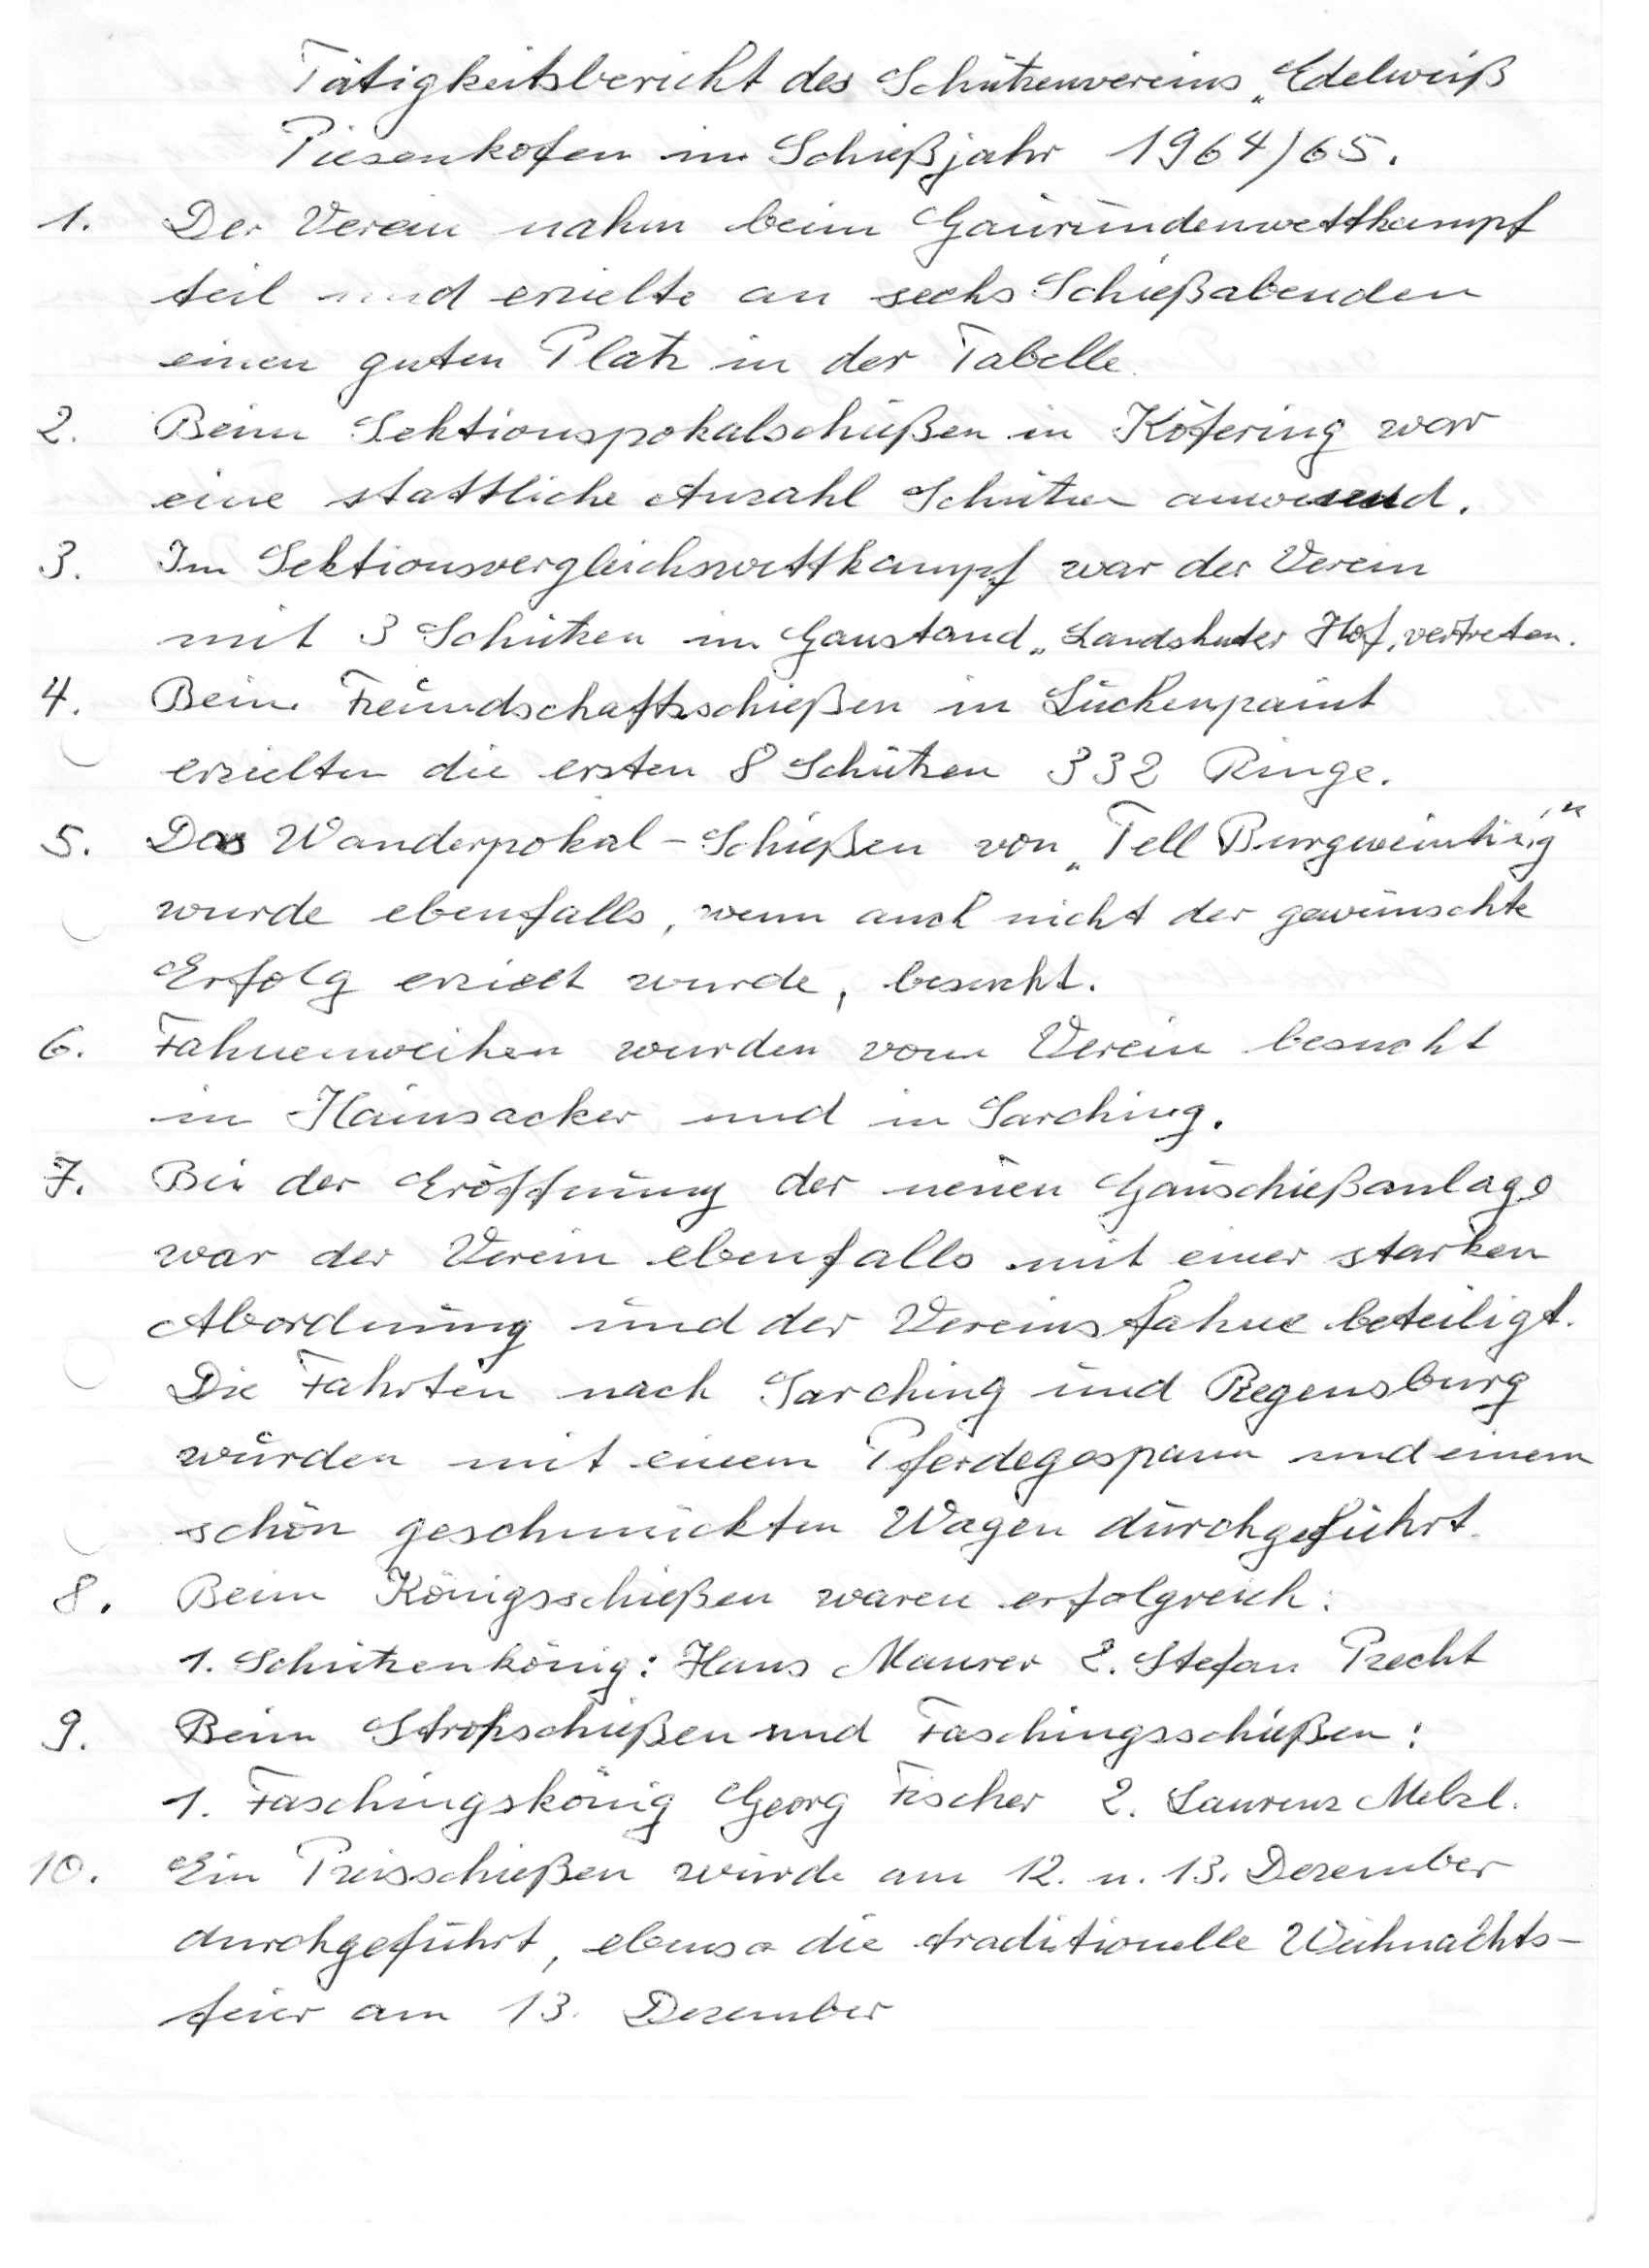 Tätigkeitsbericht des Schützenvereins „Edelweiß
Piesenkofen im Schießjahr 1964/65.
1. Der Verein nahm beim Gaurundenwettkampf
teil und erzielte an sechs Schießabenden
einen guten Platz in der Tabelle.
2. Beim Sektionspokalschießen in Köfering war
eine stattliche Anzahl Schützen anwesend.
3. Im Sektionsvergleichswettkampf war der Verein
mit 3 Schützen im Gaustand „Landshuter Hof" vertreten.
4. Beim Freundschaftsschießen in Luckenpaint
erzielten die ersten 8 Schützen 332 Ringe.
5. Das Wanderpokal-Schießen von „Tell Burgweinting"
wurde ebenfalls, wenn auch nicht der gewünschte
Erfolg erzielt wurde, besucht.
6. Fahnenweihen wurden vom Verein besucht
in Hainsacker und in Sarching.
7. Bei der Eröffnung der neuen Gauschießanlage
war der Verein ebenfalls mit einer starken
Abordnung und der Vereinsfahne beteiligt.
Die Fahrten nach Sarching und Regensburg
wurden mit einem Pferdegespann und einem
schön geschmückten Wagen durchgeführt.
8. Beim Königsschießen waren erfolgreich:
1. Schützenkönig: Hans Maurer 2. Stefan Precht
9. Beim Strohschießen und Faschingsschießen:
1. Faschingskönig Georg Fischer 2. Laurenz Melzl.
10. Ein Preisschießen wurde am 12. u. 13. Dezember
durchgeführt, ebenso die traditionelle Weihnachts-
feier am 13. Dezember